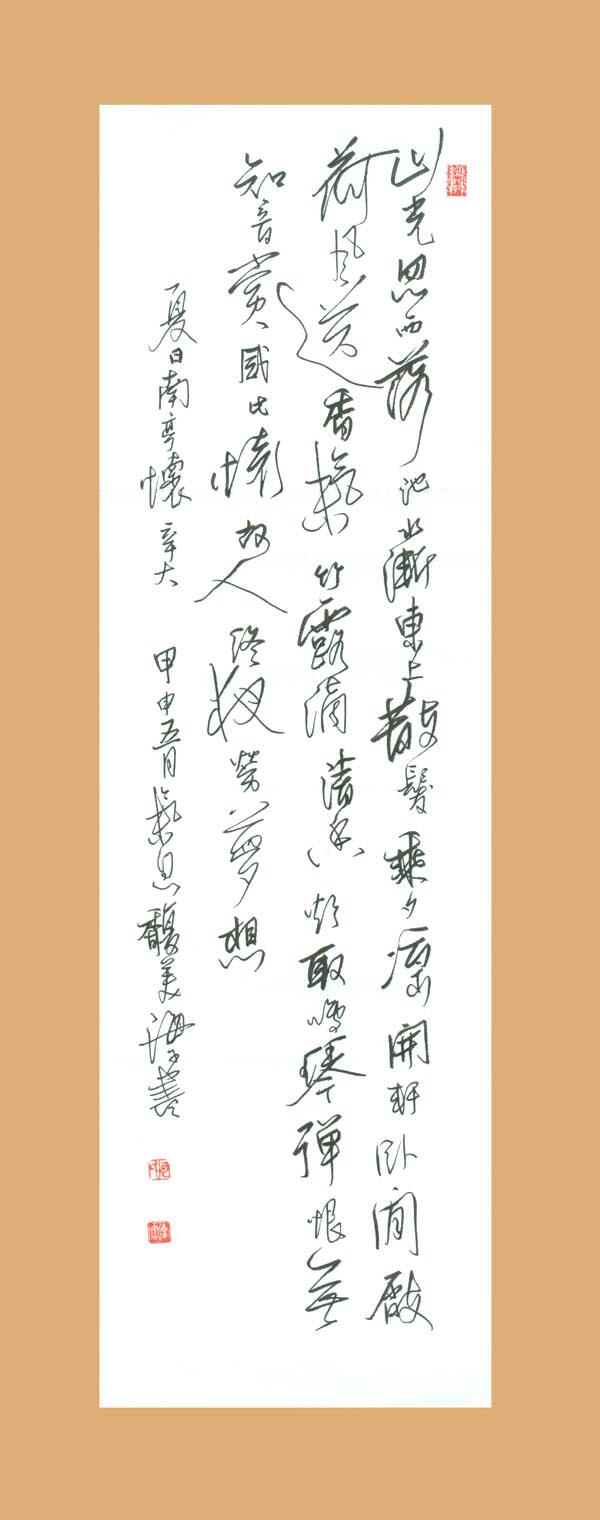 山光忽西落池水漸東上散髮乘夕涼開軒臥閒敞
荷風送香氣竹露滴清響欲取鳴琴彈恨無
知音賞感此懷故人終夜勞夢想
夏日南亭懷辛大 甲申五月 馥美海書